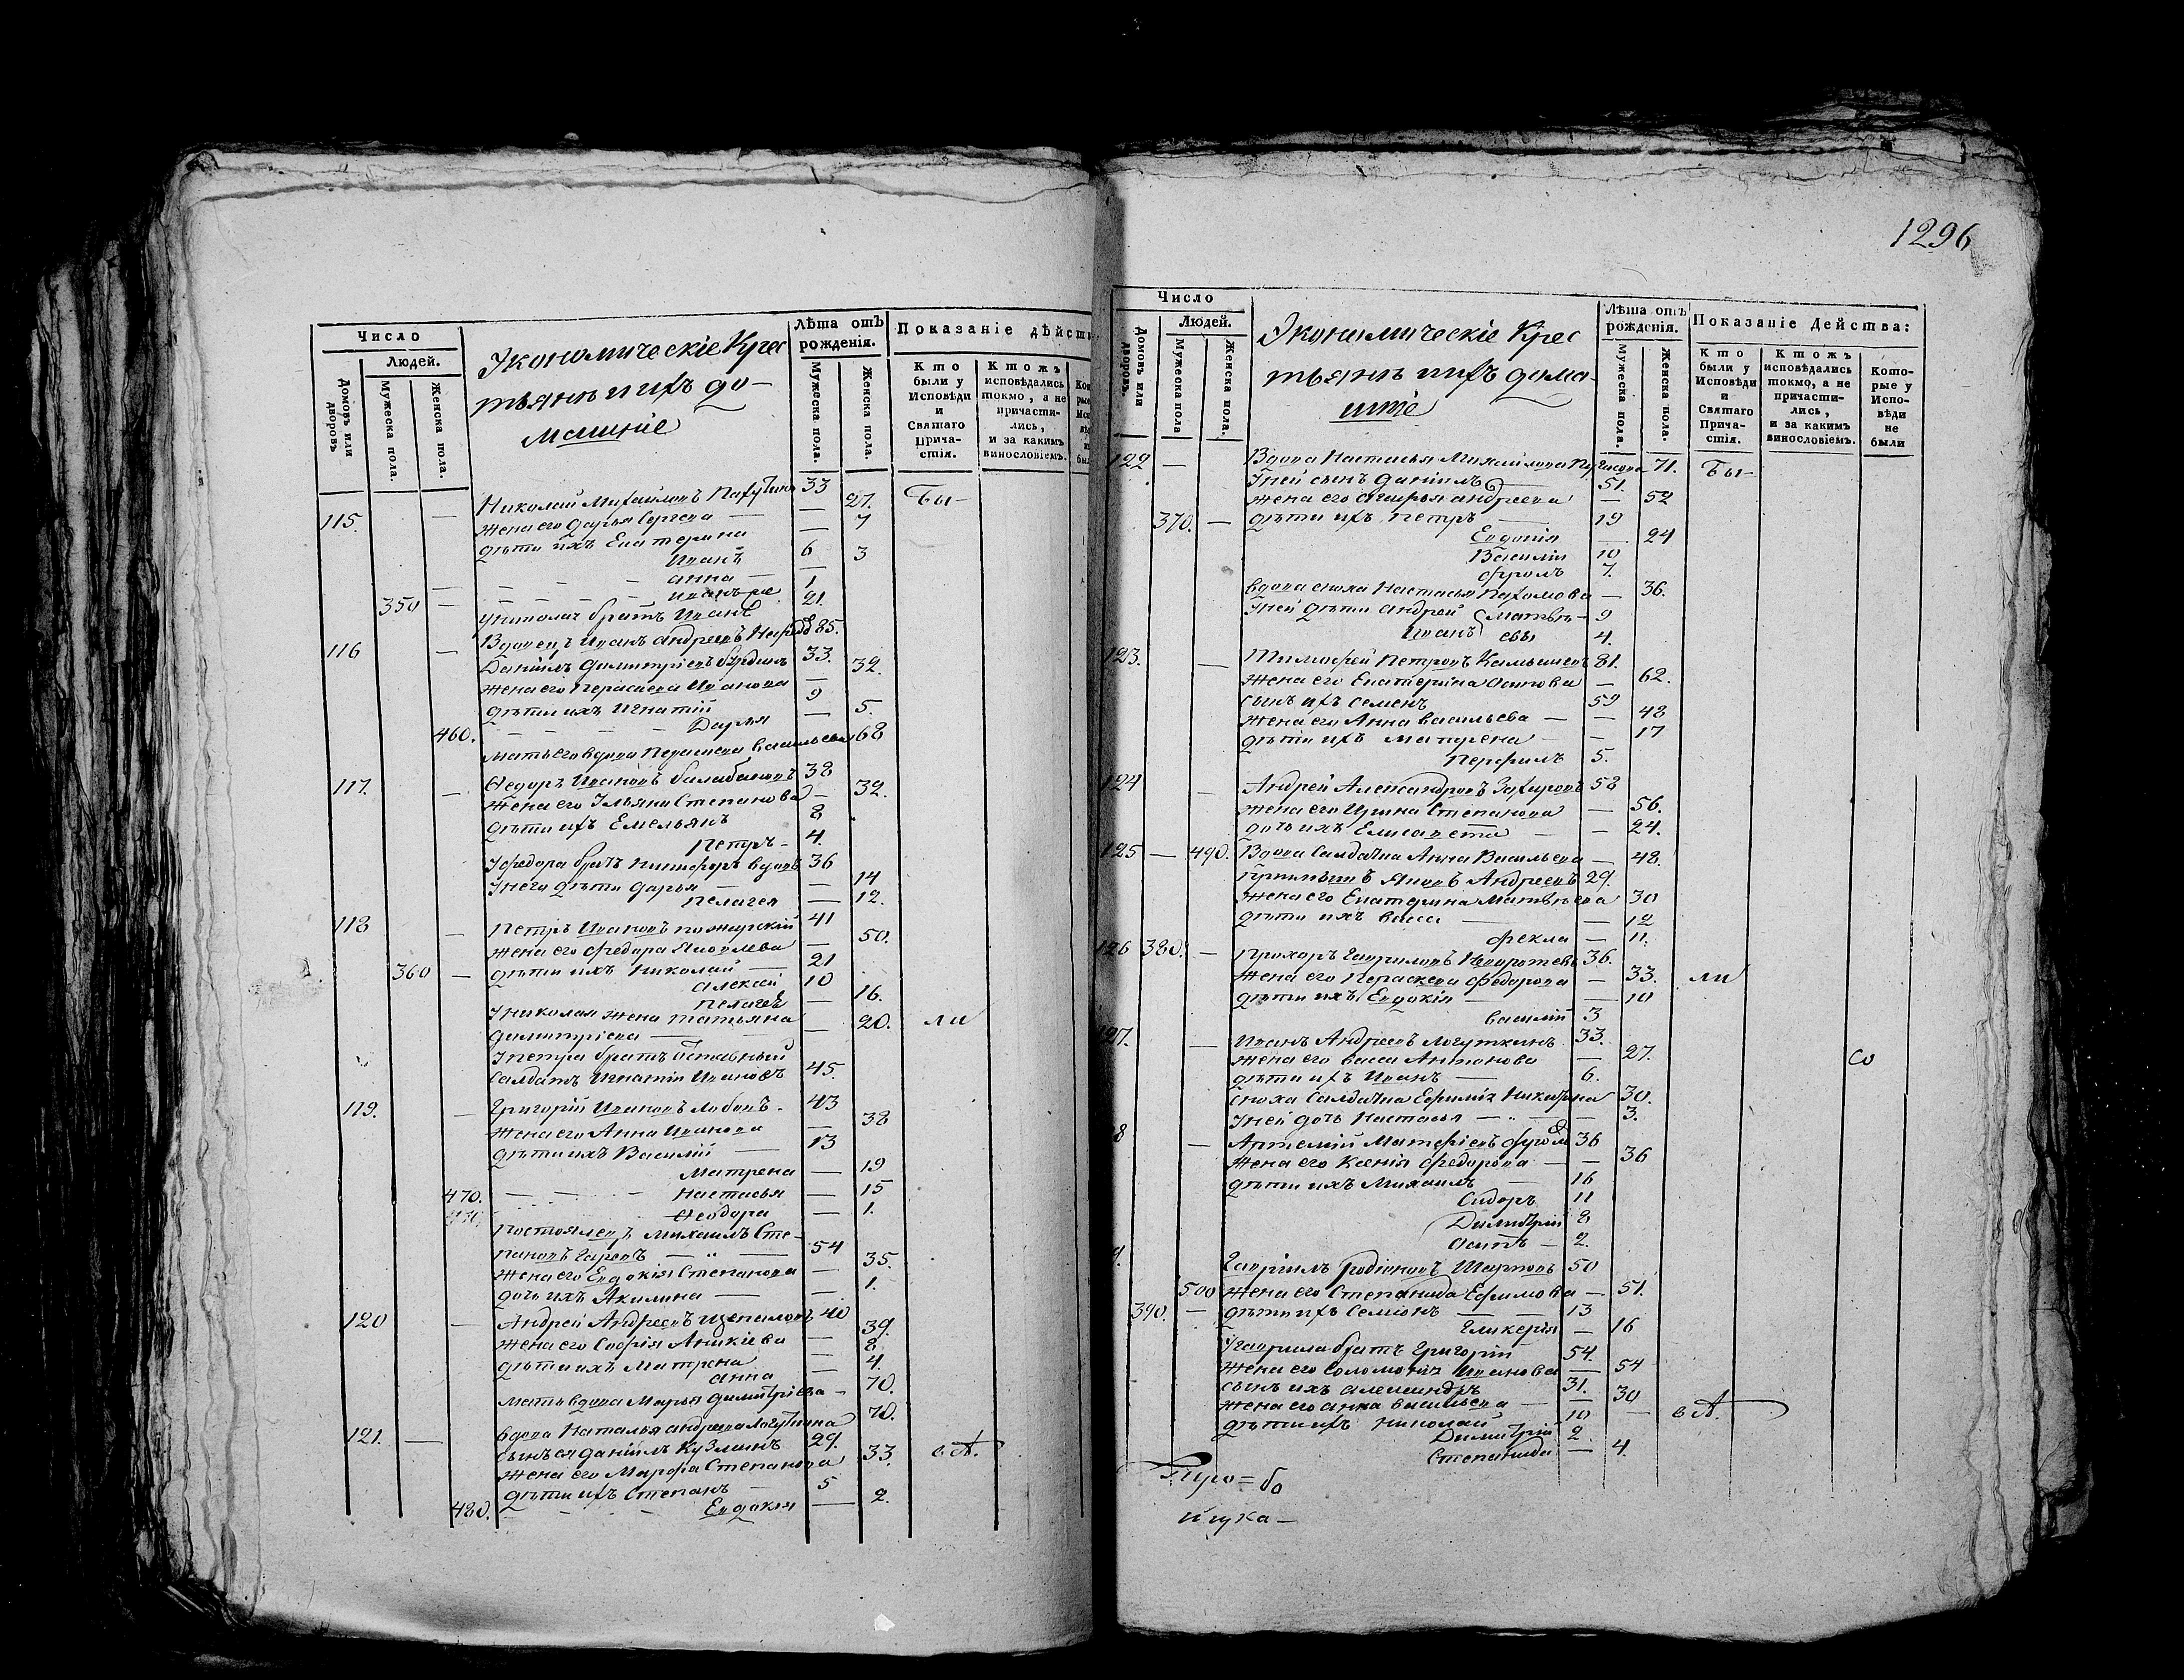 Число
Людей.
Домовъ или дворовъ
Мужеска пола.
Женска пола.
Экономическіе Крес
тьянъ и ихъ до-
машніе
Лѣта отъ рожденія.
Мужеска пола.
Женска пола.
Показаніе дѣйств
Кто были у Исповѣди и Святаго Прича-стія.
Ктожъ исповѣдались токмо, а не причасти-лись, и за какимъ винословіемъ.
Николай Михайловъ 33 Бы-
115. — жена его Дарья Сергева — 27.
дѣти ихъ Екатерина — 7
Иванъ 6
— — — — анна — 3
— — — — Иванъ же 1
350 — Униколая братъ Иванъ 21.
116 — Вдовецъ Иванъ андреевъ 85.
Данiилъ Димитріевъ 33.
жена его Пераскева Иванова — 32.
дѣти ихъ Игнатій 9
460. — — — — Дарья — 5.
мать его вдова Пераскева васильева 68
117. — Ѳедоръ Ивановъ балабановъ 38
жена его Ульяна Степанова — 32.
дѣти ихъ Емельянъ 8
Петръ - 4.
Уфедора братъ Никифоръ вдовъ 36
Унего дѣти дарья — 14
Пелагея — 12.
118 — Петръ Ивановъ пожарскій 41
жена его федора Яковлева — 50.
360 — дѣти ихъ Николай — 21
алексѣй 10
Пелагея — 16.
Униколая жена татьяна — 20. ли
димитріева —
Упетра братъ Отставный
Салдатъ Игнатій Ивановъ 45.
119. — Григорій Ивановъ Лобовъ. 43
жена его Анна Иванова — 38
дѣти ихъ Василій — 13
Матрена — 19
470. — — — настасья — 15
Ѳеодора — 1.
Постоялецъ Михаилъ Сте-
пановъ — " — 54
жена его Евдокія Степанова — 35.
дочь ихъ Акилина — — 1.
120 — Андрей Андреевъ 40
жена его Софія Аникіева — 39.
дѣти ихъ Матрена — 8
анна — 4.
мать вдова Марья димитріева — 70.
121. — вдова Наталья андреева Логуткина 70.
сынъ ея данiилъ Кузминъ 29.
жена его Марфа Степанова 33. в А.
дѣти ихъ Степанъ — 5
480. — — — Евдокія — 2.
1296
Число
Людей.
Домовъ или дворовъ.
Мужеска пола
Женска пола.
Экономическіе Крес
тьянъ и ихъ дома-
шніе
Лѣта отъ рожденія.
Мужеска пола.
Женска пола.
Показаніе Действа:
Кто были у Исповѣди и Святаго Прича-стія.
Ктожъ исповѣдались токмо, а не причасти-лись, и за какимъ винословіемъ.
Кото-рые у Испо-вѣди не были
122 — Вдова Настасья Михайлова 71. Бы-
Уней сынъ данiилъ — 51.
жена его андреева — 52
370. — дѣти ихъ Петръ — 19
Евдокія — 24
Василій 10
фролъ 7.
вдова сноха Настасья Пахомова — 36.
Уней дѣти андрей Матвѣе- 9
Иванъ евы 4.
123. — Тимофей Петровъ 81.
жена его Екатерина — 62.
сынъ ихъ Семенъ 59
жена его Анна васильева — — 48
дѣти ихъ матрена — — 17
Перфилъ 5.
124 — Андрей Александровъ Захаровъ 58
жена его Ирина Степанова — 56.
дочь ихъ Елисавета — — 24.
125 — 490. Вдова Салдатка Анна Васильева — 48.
Яковъ Андреевъ 29.
жена его Екатерина Матвѣева 30
дѣти ихъ васса — — 12
фекла — 11.
126 380. — Прохоръ Гавриловъ 36.
жена его Пераскева Федорова — 33. ли
дѣти ихъ Евдокія — — 10
василій 3
127. — Иванъ Андреевъ Логуткинъ 33.
жена его васса Антонова — 27. со
дѣти ихъ Иванъ — 6.
сноха Салдатка Ефимія 30.
Уней дочь Настасья — — 3.
8 — Артемій 36
жена его Ксенія Федорова — — 36
дѣти ихъ Михаилъ — 16
Сидоръ 11
Димитрій 8
осипъ — 2.
9. Гавріилъ Родіоновъ Шарповъ 50
500 жена его Степанида Ефимова — 51.
390. — дѣти ихъ Семіонъ — — 13
Гликерія — 16
Угаврила братъ Григорій 54.
жена его Соломонія Иванова — 54
сынъ ихъ александръ 31.
жена его анна васильева — — 30
дѣти ихъ николай 10 — в А.
Димитрій 2
Степанида — 4